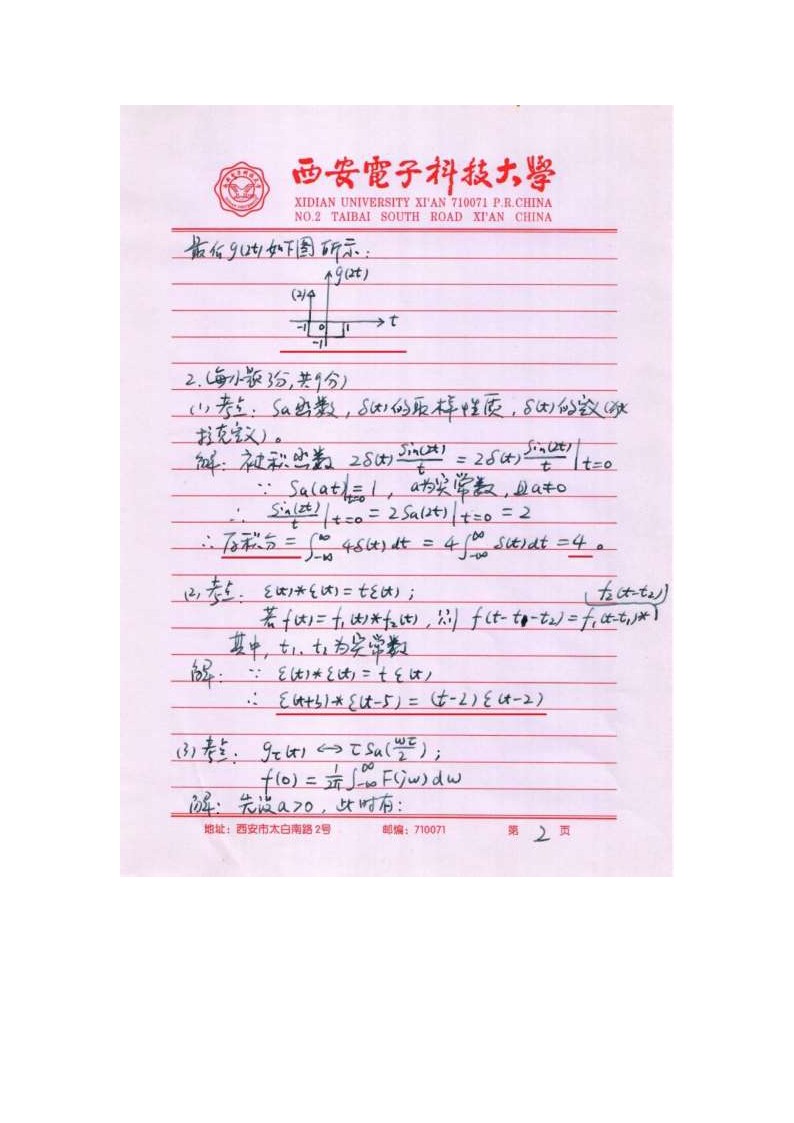 西安電子科技大學
XIDIAN UNIVERSITY XI'AN 710071 P.R.CHINA
NO.2 TAIBAI SOUTH ROAD XI'AN CHINA
最后g(2t)如下图所示:
g(2t)
(2)
-1 0 1 t
-1
2.(每小题3分,共9分)
(1)考点: Sa函数, δ(t)的取样性质, δ(t)的定义(狄
拉克定义)。
解: 被积函数 2δ(t) sin(2t)/t = 2δ(t) sin(2t)/t |t=0
∵ Sa(at)|t=0 = 1, a为实常数, 且a≠0
∴ sin(2t)/t |t=0 = 2Sa(2t)|t=0 = 2
∴ 原积分 = ∫-∞^∞ 4δ(t)dt = 4∫-∞^∞ δ(t)dt = 4。
(2)考点: ε(t)*ε(t) = tε(t);
若f(t) = f₁(t)*f₂(t), 则 f(t-t₁-t₂) = f₁(t-t₁)* f₂(t-t₂)
其中, t₁、t₂为实常数
解: ∵ ε(t)*ε(t) = tε(t)
∴ ε(t+3)*ε(t-5) = (t-2)ε(t-2)
(3)考点: gτ(t) ↔ τSa(ωτ/2);
f(0) = 1/2π ∫-∞^∞ F(jω)dω
解: 先设a>0, 此时有:
地址:西安市太白南路2号 邮编:710071 第 2 页